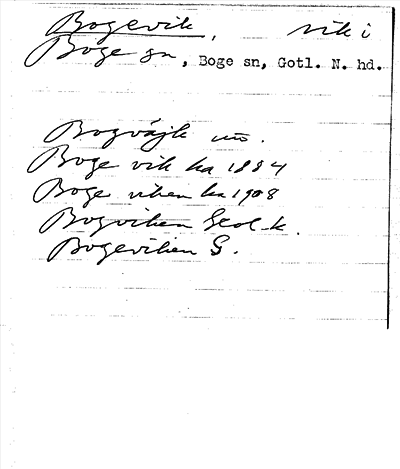 Bogevik, vik i
Boge sn, Boge sn, Gotl. N. hd.
Bogväjk uo.
Boge vik ka 1884
Boge viken ka 1908
Bogviken Geol k.
Bogeviken G.